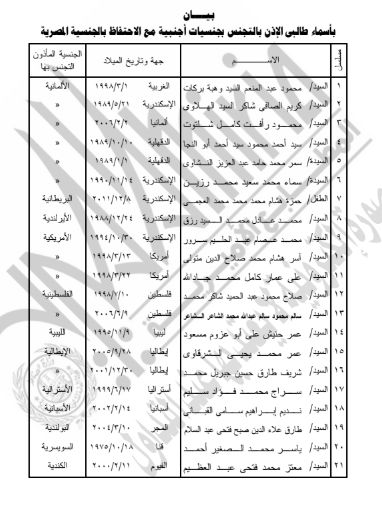 بيـــان
بأسماء طالبى الإذن بالتجنس بجنسيات أجنبية مع الاحتفاظ بالجنسية المصرية
مسلسل الاســـم جهة وتاريخ الميلاد الجنسية المأذون التجنس بها
١ السيد/ محمود عبد المنعم السيد وهبة بركات الغربية ١٩٩٨/٣/١ الألمانية
٢ السيد/ كريم الصافى شاكر السيد الهلاوى الإسكندرية ١٩٨٩/٥/٢١ »
٣ السيد/ محمـود رأفـت كامـل شـاتوت ألمانيا ٢٠٠٦/٢/٢ »
٤ السيد/ وسيد أحمد محمود سيد أحمد أبو النجا الدقهلية ١٩٨٩/١٠/١٠ »
٥ السيدة/ سمر محمد حامد عبد العزيز النشاوى الدقهلية ١٩٨٩/١/١ »
٦ السيدة/ سماء محمـد سعيد محمـد رزيـن الإسكندرية ١٩٩٠/١١/١٤ »
٧ الطفل/ حمزة هشام محمد محمد محمد العجمى الإسكندرية ٢٠١١/١٢/٨ البريطانية
٨ السيد/ محمـد عـادل محمـد الـسيد رزق الإسكندرية ١٩٨٨/١٢/٢٤ الأيرلندية
٩ السيد/ محمـد عـصام عبـد الحليـم سـرور الإسكندرية ١٩٩٤/١٠/٣٠ الأمريكية
١٠ السيد/ آسر هشام محمد صلاح الدين متولى أمريكا ١٩٩٨/٣/١٣ »
١١ السيد/ على عمار كامل محمـد جـادالله أمريكا ١٩٩٨/٣/٢٢ »
١٢ السيد/ صلاح محمود عبد الحميد شاكر محمـد فلسطين ١٩٩٨/٧/١٠ الفلسطينية
١٣ السيد/ سالم محمود سالم عبدالله محمد الشاعر الشاعر فلسطين ٢٠٠٦/٦/٩ »
١٤ السيد/ عمر حنيش على أبو عزوم مسعود ليبيا ١٩٩٥/١١/٩ الليبية
١٥ السيد/ عمر محمـد يحيـى الـشرقاوى إيطاليا ٢٠٠٥/٩/٢٨ الإيطالية
١٦ السيد/ شريف طارق حسين جبريل محمـد إيطاليا ٢٠٠١/١٢/٣٠ »
١٧ السيد/ سـراج محمـد فـؤاد سـليم أستراليا ١٩٩٩/٦/١٧ الأسترالية
١٨ السيد/ نـديم إبـراهيم سـامى القبـانى أسبانيا ٢٠٠٢/٢/١٤ الأسبانية
١٩ السيد/ طارق علاء الدين صبح فتحى عبد السلام المجر ٢٠٠٤/٣/١٠ البولندية
٢٠ السيد/ ياسـر محمـد الـصغير أحمـد قنا ١٩٧٥/١٠/١٨ السويسرية
٢١ السيد/ معتز محمد فتحى عبد العظيم الفيوم ٢٠٠٠/٢/١١ الكندية